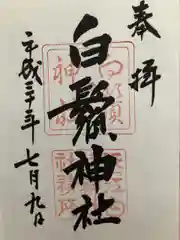 奉拝
白鬚神社
平成三十年七月九日